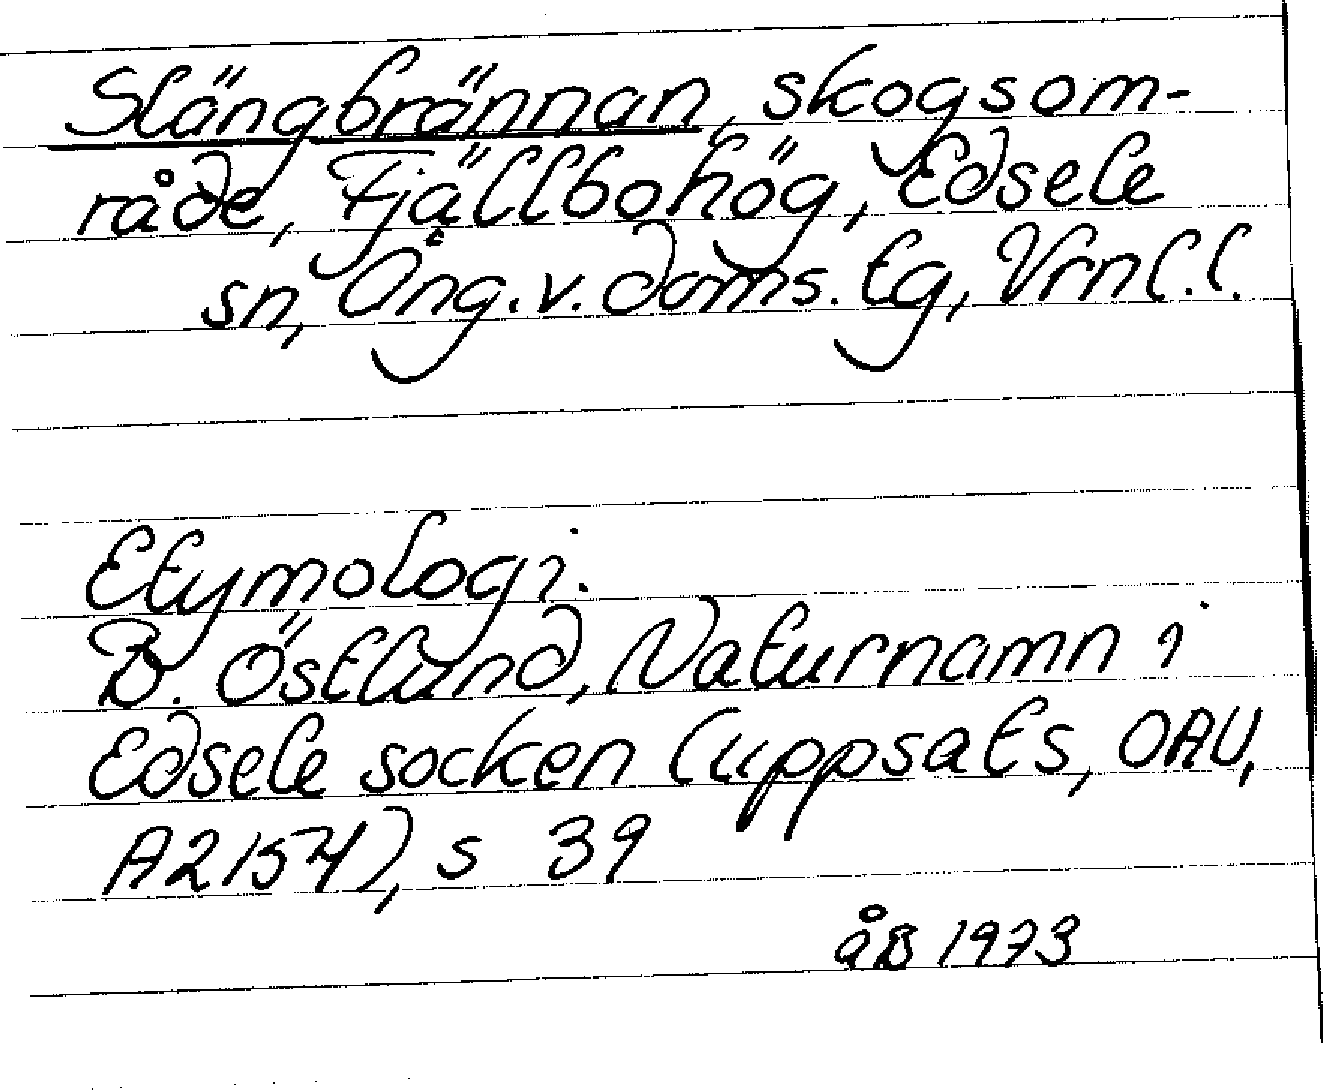 Slängbrännan, skogsom-
råde, Fjällbohög, Edsele
sn, Ång. v. doms. tg, Vrnl.l.
Etymologi.
B. Östlund, Naturnamn i
Edsele socken (uppsats, OAU,
A2154), s 39
åB 1973